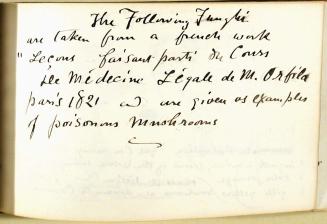 The Following Fungi
are taken from a french work
"Lecons faisant parti du Cours
de Médecine Légale de M. Orfila
paris 1821 and are given as examples
of poisonous Mushrooms